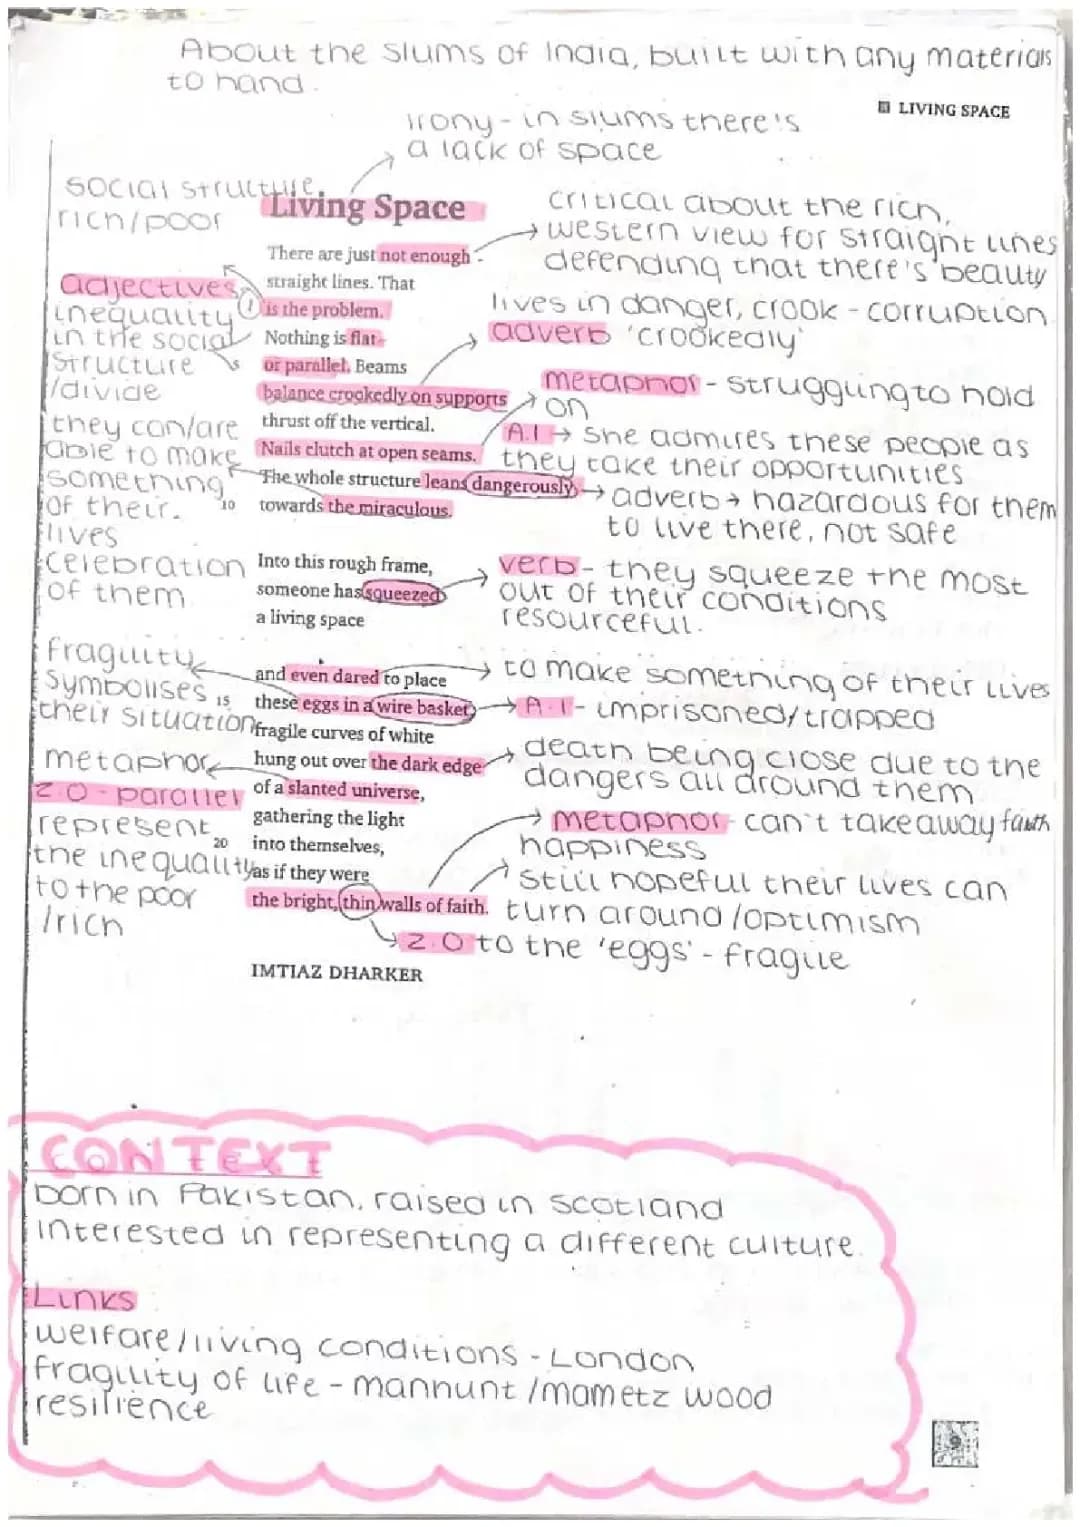 About the slums of India, built with any materials
to hand.
LIVING SPACE
irony - in slums there's
a lack of space
social structure
rich/poor
Living Space
critical about the rich,
western view for straight lines
defending that there's beauty
There are just not enough
straight lines. That
is the problem.
Nothing is flat
or parallel. Beams
balance crookedly on supports
thrust off the vertical.
Nails clutch at open seams.
The whole structure leans dangerously
10 towards the miraculous.
adjectives
inequality
in the social
structure
/divide
they can/are
able to make
something
of their
lives
celebration
of them
lives in danger, crook - corruption
adverb 'crookedly'
metaphor - struggling to hold
on
A.I → she admires these people as
they take their opportunities
adverb → hazardous for them
to live there, not safe
Into this rough frame,
someone has squeezed
a living space
verb - they squeeze the most
out of their conditions
resourceful.
and even dared to place
15 these eggs in a wire basket,
fragile curves of white
hung out over the dark edge
of a slanted universe,
gathering the light
20 into themselves,
as if they were
the bright, thin walls of faith.
fragility
symbolises
their situation
metaphor
2.0 - parallel
represent
the inequality
to the poor
/rich
to make something of their lives
A.I - imprisoned/trapped
death being close due to the
dangers all around them
metaphor - can't take away faith
happiness
still hopeful their lives can
turn around/optimism
2.0 to the 'eggs' - fragile
IMTIAZ DHARKER
CONTEXT
born in Pakistan, raised in Scotland
interested in representing a different culture.
Links
welfare/living conditions - London
fragility of life - mannunt/mametz wood
resilience